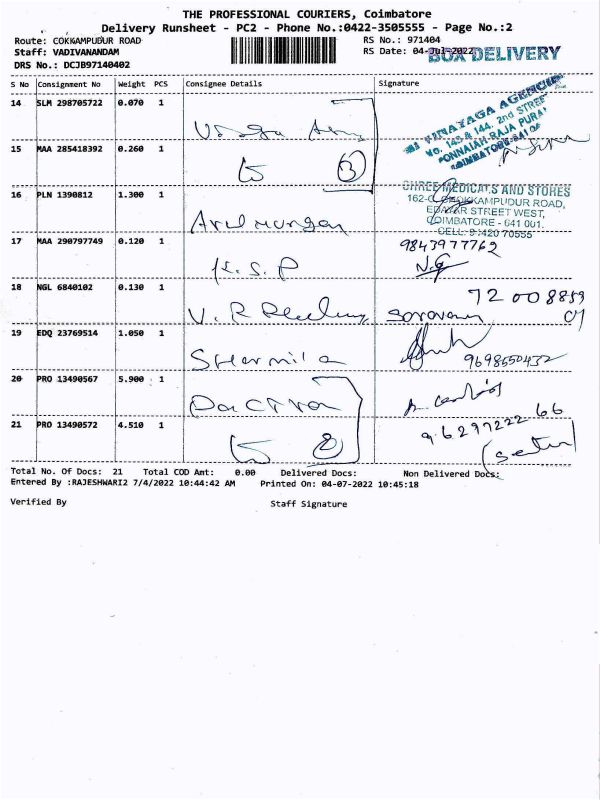 THE PROFESSIONAL COURIERS, Coimbatore
Delivery Runsheet - PC2 - Phone No.:0422-3505555 - Page No.:2
Route: COKKAMPUDUR ROAD RS No.: 971404
Staff: VADIVANANDAM RS Date: 04-Jul-2022
BOX DELIVERY
DRS No.: DCJB97140402
S No Consignment No Weight PCS Consignee Details Signature
14 SLM 298705722 0.070 1
VINAYAGA AGENCIES
No. 143 & 144, 2nd STREET
PONNAIAH RAJA PURAM
COIMBATORE
15 MAA 285418392 0.260 1 3
16 PLN 1390812 1.300 1 Arul murgan
SHREE MEDICALS AND STORES
162-C, COKKAMPUDUR ROAD,
EDAYAR STREET WEST,
COIMBATORE - 641 001.
CELL: 93420 70555
17 MAA 290797749 0.120 1 K. S. P 9843977762
N.G
18 NGL 6840102 0.130 1 V. R 72 008859
19 EDQ 23769514 1.050 1 Sharmila 9698650432
20 PRO 13490567 5.900 1
21 PRO 13490572 4.510 1 8 9629722266
Total No. Of Docs: 21 Total COD Amt: 0.00 Delivered Docs: Non Delivered Docs:
Entered By :RAJESHWARI2 7/4/2022 10:44:42 AM Printed On: 04-07-2022 10:45:18
Verified By Staff Signature